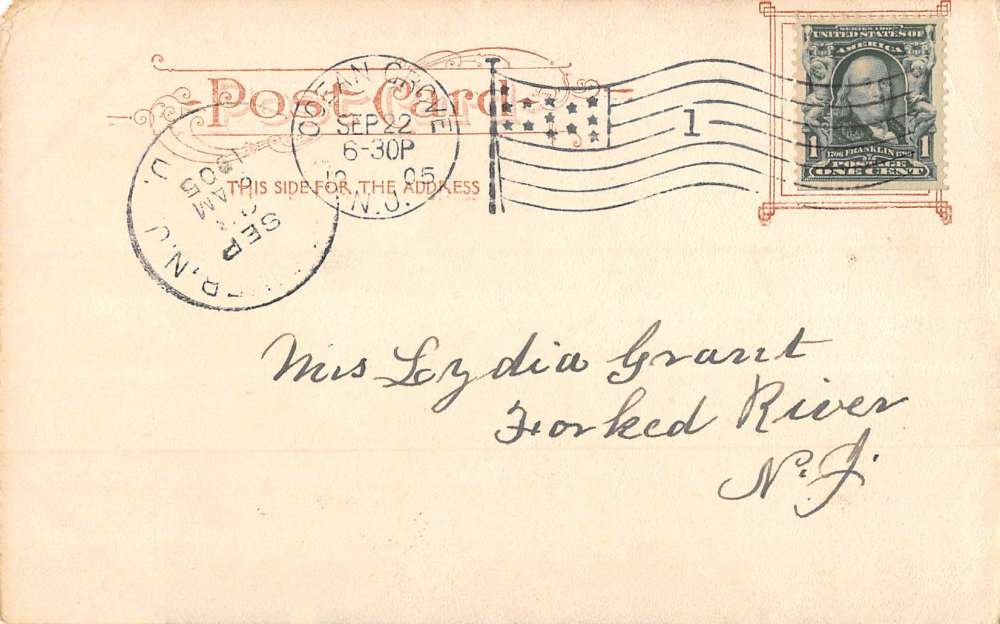 Post Card
THIS SIDE FOR THE ADDRESS
OCEAN GROVE
SEP 22
6-30P
05
N.J.
1
SERIES 1902
UNITED STATES OF
AMERICA
1706 FRANKLIN 1790
POSTAGE
1 1
ONE CENT
SEP
AM
1905
R, N.J.
Mrs Lydia Grant
Forked River
N. J.